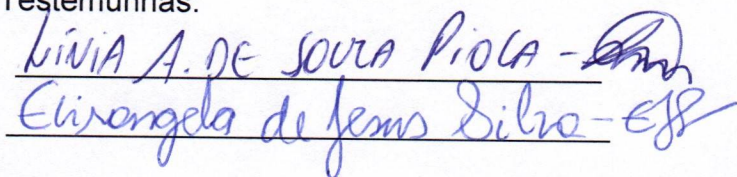 Testemunhas:
LÍNIA A. DE SOUZA PIOLA -
Elisangela de Jesus Silva - EJS